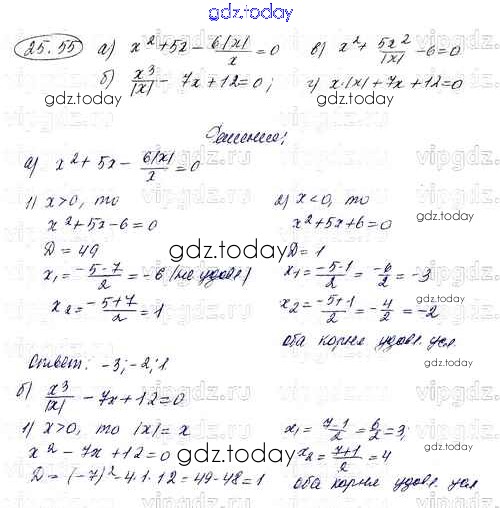 gdz.today
25.55 а) x²+5x - 6|x|/x = 0 в) x² + 5x²/|x| - 6 = 0
б) x³/|x| - 7x + 12 = 0; г) x·|x| + 7x + 12 = 0
gdz.today gdz.today
Решение:
а) x² + 5x - 6|x|/x = 0
1) x>0, то 2) x<0, то
x²+5x-6=0 x²+5x+6=0
D = 49 D = 1
gdz.today
x₁ = (-5-7)/2 = -6 (не удовл) x₁ = (-5-1)/2 = -6/2 = -3
x₂ = (-5+7)/2 = 1 x₂ = (-5+1)/2 = -4/2 = -2
gdz.today
оба корня удовл. усл.
Ответ: -3; -2; 1
gdz.today
б) x³/|x| - 7x + 12 = 0
1) x>0, то |x| = x x₁ = (7-1)/2 = 6/2 = 3;
gdz.today
x² - 7x + 12 = 0 x₂ = (7+1)/2 = 4
D = (-7)² - 4·1·12 = 49 - 48 = 1 оба корня удовл. усл
gdz.today